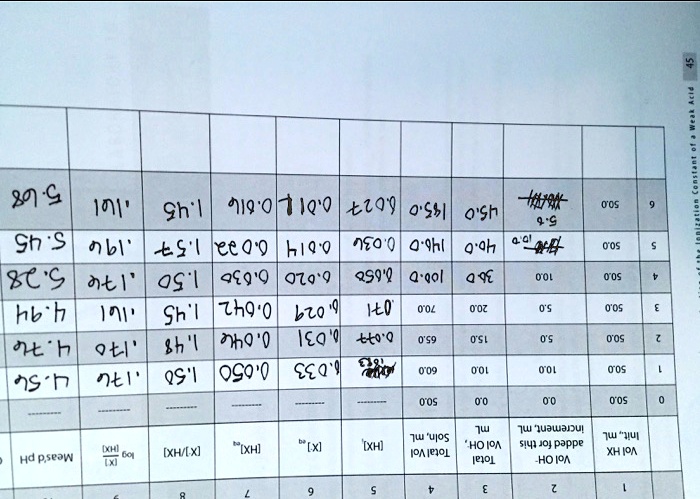 1 2 3 4 5 6 7 8
Vol HX Init., mL
Vol OH- added for this increment, mL
Total Vol OH-, mL
Total Vol Soln, mL
[HX]i
[X]eq
[HX]eq
[X]/[HX]
log [X]/[HX]
Meas'd pH
0 50.0 0.0 0.0 50.0 --------- --------- --------- --------- --------- ---------
1 50.0 10.0 10.0 60.0 .083 0.033 0.050 1.50 .176 4.56
2 50.0 5.0 15.0 65.0 0.077 0.031 0.046 1.48 .170 4.76
3 50.0 5.0 20.0 70.0 .071 0.029 0.042 1.45 .161 4.94
4 50.0 10.0 30.0 100.0 0.050 0.020 0.030 1.50 .176 5.28
5 50.0 10.0 40.0 140.0 0.036 0.014 0.022 1.57 .196 5.45
6 50.0 5.0 45.0 185.0 0.027 0.011 0.016 1.45 .161 5.68
the Ionization Constant of a Weak Acid 45